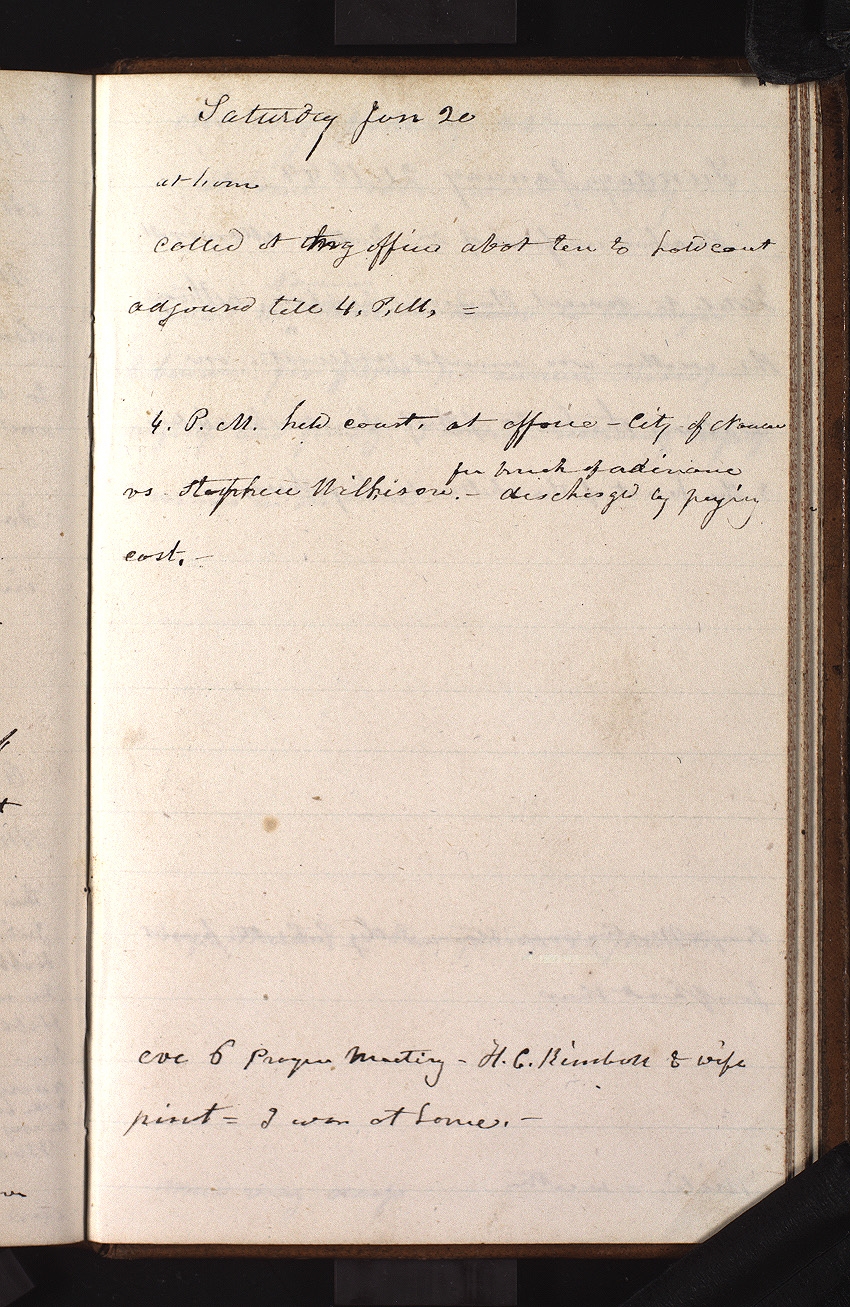 Saturday Jan 20
at home
called at my office about ten to hold court
adjourd till 4, P,M, =
4. P. M. held court, at office - City of Nauvoo
for breach of ordinance
vs Stephen Wilkinson. - dischargd by paying
cost. -
eve 6 Prayer Meeting - H. C. Kimball & wife
= I was at home. -